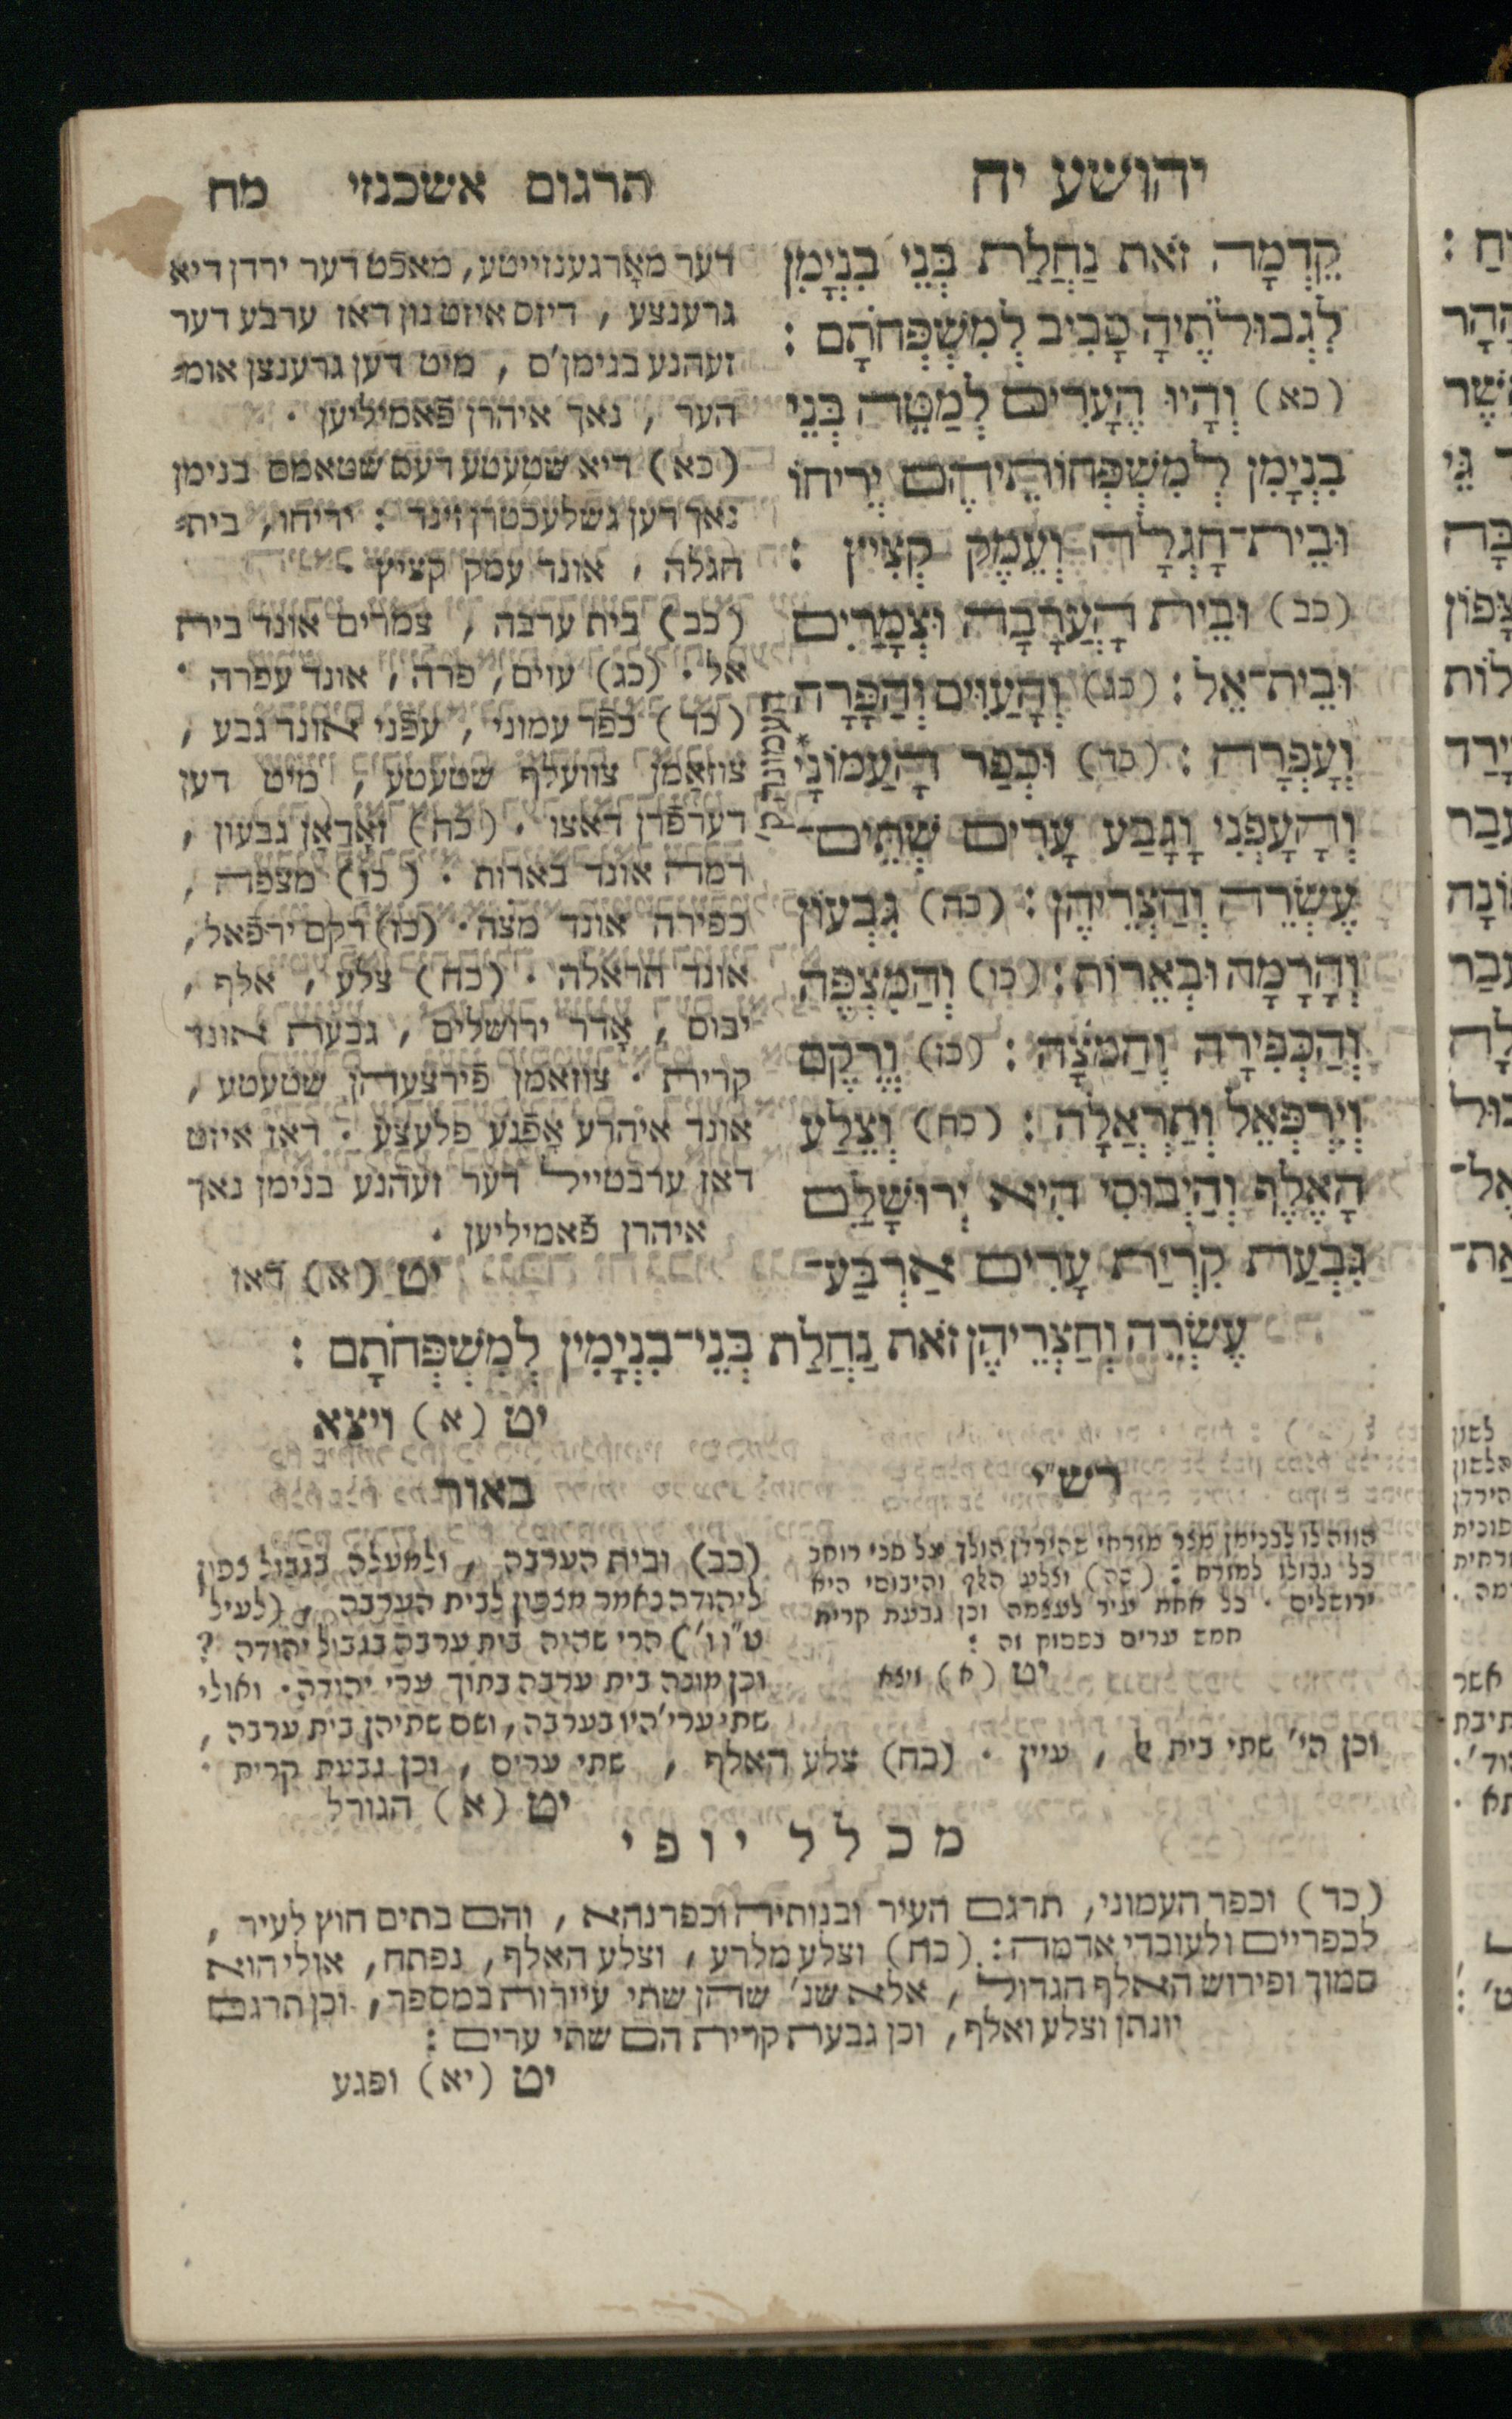 יהושע יח
תרגום אשכנזי מח
קֵדְמָה זֹאת נַחֲלַת בְּנֵי בִנְיָמִן
לִגְבוּלֹתֶיהָ סָבִיב לְמִשְׁפְּחֹתָם :
(כא) וְהָיוּ הֶעָרִים לְמַטֵּה בְּנֵי
בִנְיָמִן לְמִשְׁפְּחוֹתֵיהֶם יְרִיחוֹ
וּבֵית־חָגְלָה וְעֵמֶק קְצִיץ :
(כב) וּבֵית הָעֲרָבָה וּצְמָרַיִם
וּבֵית־אֵל : (כג) וְהָעַוִּים וְהַפָּרָה
וְעָפְרָה : (כד) וּכְפַר הָעַמּוֹנָי*
וְהָעָפְנִי וָגָבַע עָרִים שְׁתֵּים־
עֶשְׂרֵה וְחַצְרֵיהֶן : (כה) גִּבְעוֹן
וְהָרָמָה וּבְאֵרוֹת : (כו) וְהַמִּצְפֶּה
וְהַכְּפִירָה וְהַמֹּצָה : (כז) וְרֶקֶם
וְיִרְפְּאֵל וְתַרְאֲלָה : (כח) וְצֵלַע
הָאֶלֶף וְהַיְבוּסִי הִיא יְרוּשָׁלַ͏ִם
גִּבְעַת קִרְיַת עָרִים אַרְבַּע־
עֶשְׂרֵה וְחַצְרֵיהֶן זֹאת נַחֲלַת בְּנֵי־בִנְיָמִן לְמִשְׁפְּחֹתָם :
יט (א) ויצא
העמונה ק'
דער מאָרגענזייטע, מאכט דער ירדן דיא
גרענצע , דיזס איזט נון דאז ערבע דער
זעהנע בנימן'ס , מיט דען גרענצן אומ־
הער , נאך איהרן פֿאמיליען .
(כא) דיא שטעטע דעס שטאממס בנימן
נאך דען גשלעכטרן זינד : יריחו, בית־
חגלה , אונד עמק קציץ .
(כב) בית ערבה , צמרים אונד בית
אל . (כג) עוים, פרה, אונד עפרה .
(כד) כפר עמוני , עפני אונד גבע ,
צוזאַמן צוועלף שטעטע , מיט דען
דערפֿרן דאצו . (כה) זאָדאַן גבעון ,
רמה אונד בארות . (כו) מצפה ,
כפירה אונד מצה . (כז) רקם ירפאל ,
אונד תראלה . (כח) צלע , אלף ,
יבוס , אָדר ירושלים , גבעת אונד
קרית . צוזאמן פֿירצעהן שטעטע ,
אונד איהרע אָפֿנע פלעצע . דאז איזט
דאז ערבטייל דער זעהנע בנימן נאך
איהרן פֿאמיליען .
יט (א) דאז
רש"י
הווה לו לבנימן מצר מזרחי שהירדן הולך על פני רוחב
כל גבולו למזרח : (כח) וצלע האלף והיבוסי היא
ירושלים . כל אחת עיר לעצמה וכן גבעת קרית
חמש ערים בפסוק זה :
יט (א) ויצא
באור
(כב) ובית הערבה , ולמעלה בגבול צפון
ליהודה נאמר מצפון לבית הערבה , (לעיל
ט"ו ו') הרי שהיה בית ערבה בגבול יהודה ?
וכן מונה בית ערבה בתוך ערי יהודה . ואולי
שתי ערי' היו בערבה, ושם שתיהן בית ערבה ,
וכן הי' שתי בית אל , עיין . (כח) צלע האלף , שתי ערים , וכן גבעת קרית .
יט (א) הגורל
מכלל יופי
(כד) וכפר העמוני, תרגם העיר ובנותיה וכפרנהא , והם בתים חוץ לעיר ,
לכפריים ולעובדי אדמה : (כח) וצלע מלרע , וצלע האלף , נפתח, אולי הוא
סמוך ופירוש האלף הגדול , אלא שנ' שהן שתי עיירות במספר, וכן תרגם
יונתן וצלע ואלף, וכן גבעת קרית הם שתי ערים :
יט (יא) ופגע